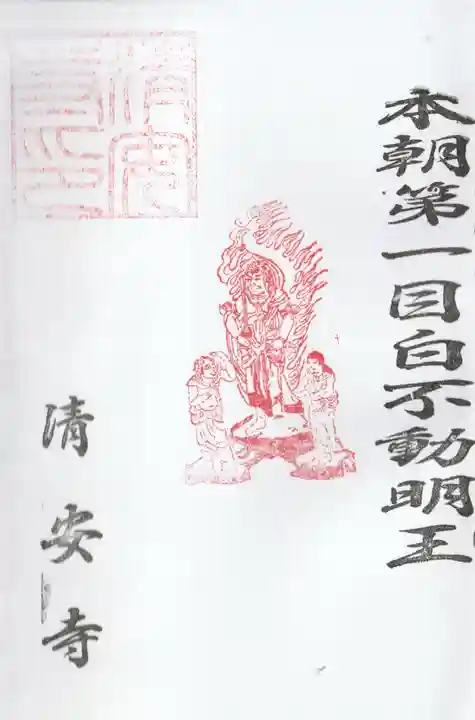 本朝第一目白不動明王
清安寺